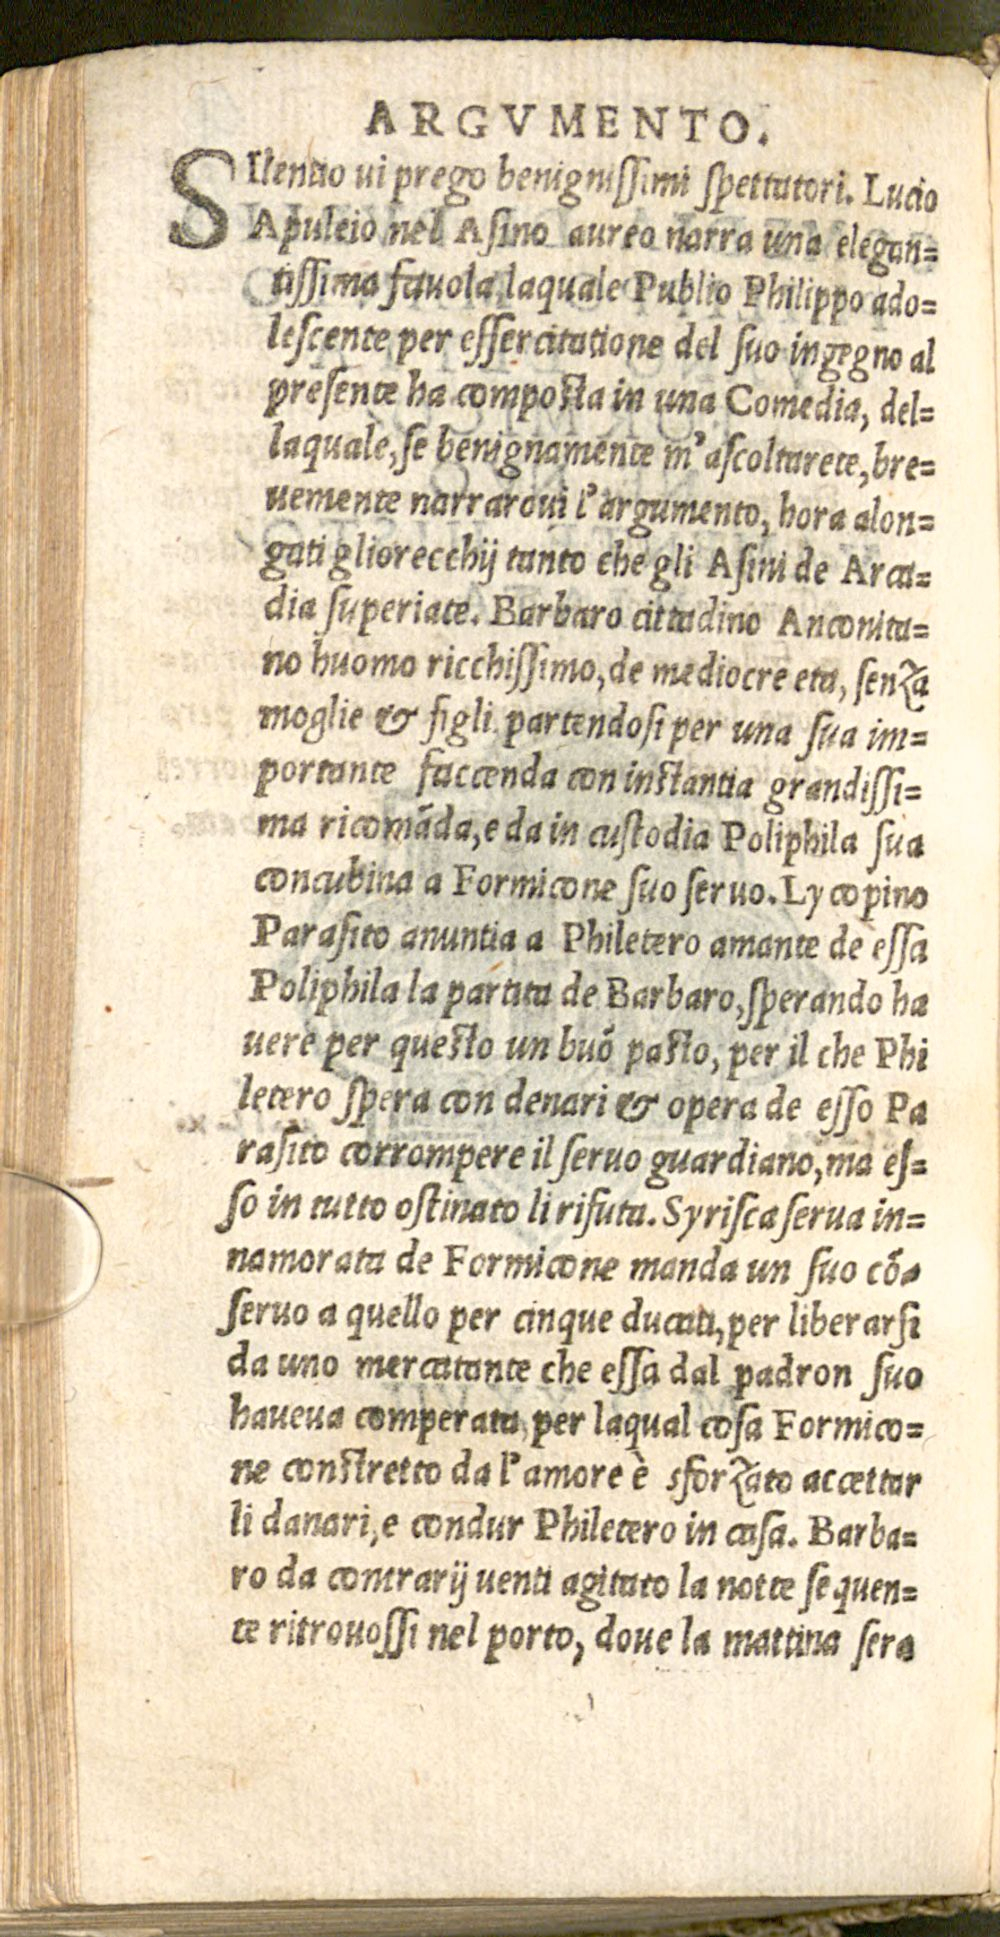 ARGVMENTO.
SIlentio ui prego benignissimi spettatori. Lucio
Apuleio nel Asino aureo narra una elegan=
tissima fauola, laquale Publio Philippo ado=
lescente per essercitatione del suo ingegno al
presente ha composta in una Comedia, del=
laquale, se benignamente m'ascoltarete, bre=
uemente narraroui l'argumento, hora alon=
gati gliorecchij tanto che gli Asini de Arca=
dia superiate. Barbaro cittadino Anconita=
no huomo ricchissimo, de mediocre eta, senza
moglie & figli partendosi per una sua im=
portante faccenda con instantia grandissi=
ma ricomāda, e da in custodia Poliphila sua
concubina a Formicone suo seruo. Lycopino
Parasito anuntia a Philetero amante de essa
Poliphila la partita de Barbaro, sperando ha
uere per questo un buō pasto, per il che Phi
letero spera con denari & opera de esso Pa
rasito corrompere il seruo guardiano, ma es=
so in tutto ostinato li rifuta. Syrisca serua in=
namorata de Formicone manda un suo cō=
seruo a quello per cinque ducati, per liberarsi
da uno mercatante che essa dal padron suo
haueua comperata, per laqual cosa Formico=
ne constretto da l'amore è sforzato accettar
li danari, e condur Philetero in casa. Barba=
ro da contrarij uenti agitato la notte sequen=
te ritrouossi nel porto, doue la mattina sera